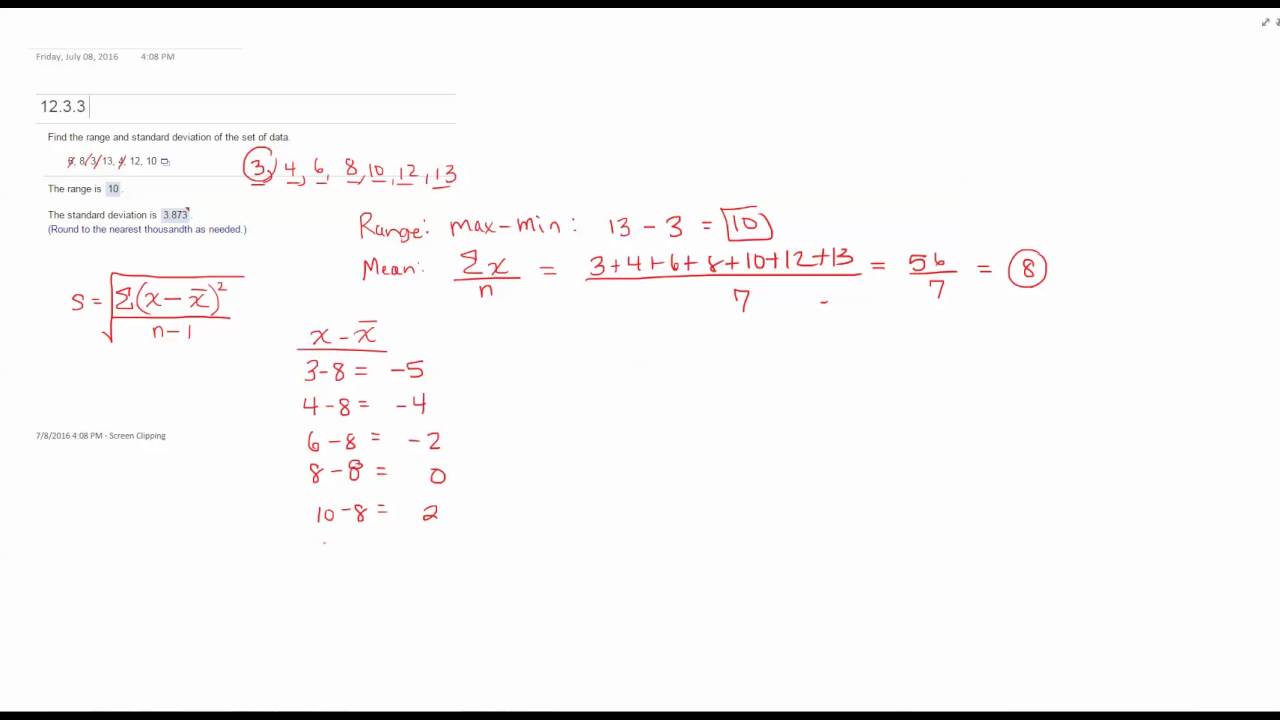 Friday, July 08, 2016 4:08 PM
12.3.3
Find the range and standard deviation of the set of data.
8, 3, 13, 4, 12, 10
3, 4, 6, 8, 10, 12, 13
The range is 10.
The standard deviation is 3.873.
(Round to the nearest thousandth as needed.)
Range: max-min: 13 - 3 = 10
Mean: Σx/n = 3+4+6+8+10+12+13/7 = 56/7 = 8
S = √Σ(x - x̄)²/n-1
x - x̄
3-8 = -5
4-8 = -4
6-8 = -2
8-8 = 0
10-8 = 2
7/8/2016 4:08 PM - Screen Clipping